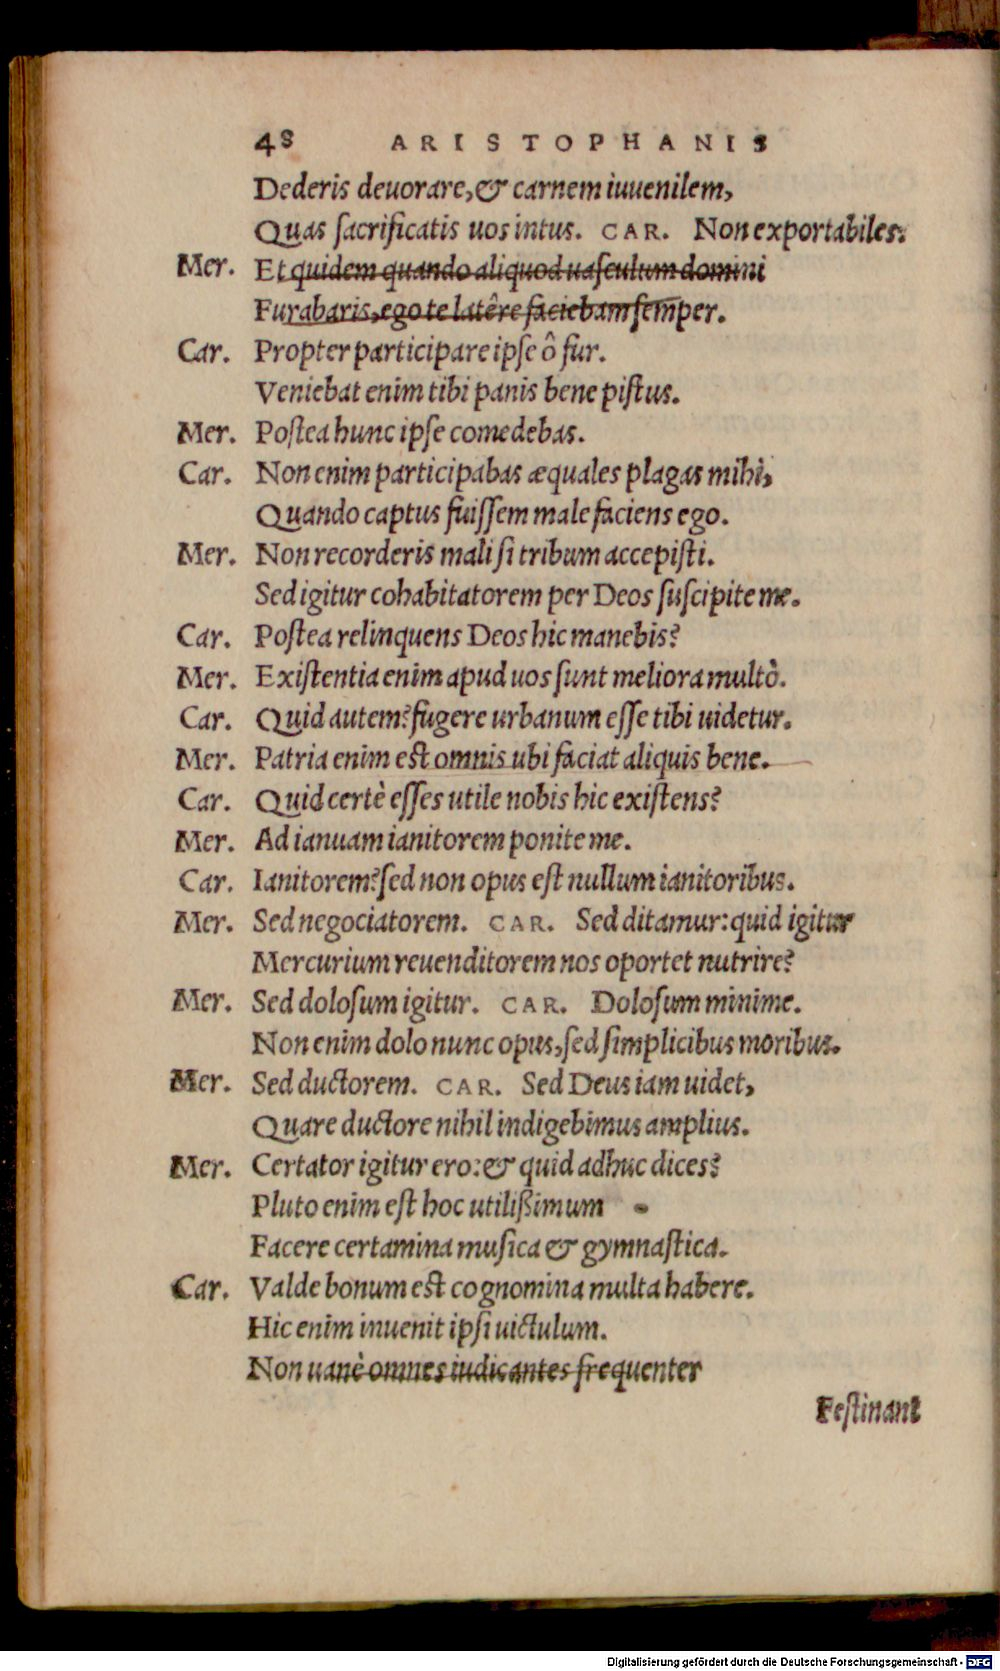 48 ARISTOPHANIS
Dederis deuorare, & carnem iuuenilem,
Quas sacrificatis uos intus. CAR. Non exportabiles.
Mer. Et quidem quando aliquod uasculum domini
Furabaris, ego te latêre faciebam semper.
Car. Propter participare ipse ô fur.
Veniebat enim tibi panis bene pistus.
Mer. Postea hunc ipse comedebas.
Car. Non enim participabas æquales plagas mihi,
Quando captus fuissem male faciens ego.
Mer. Non recorderis mali si tribum accepisti.
Sed igitur cohabitatorem per Deos suscipite me.
Car. Postea relinquens Deos hic manebis?
Mer. Existentia enim apud uos sunt meliora multò.
Car. Quid autem? fugere urbanum esse tibi uidetur.
Mer. Patria enim est omnis ubi faciat aliquis bene.
Car. Quid certè esses utile nobis hic existens?
Mer. Ad ianuam ianitorem ponite me.
Car. Ianitorem? sed non opus est nullum ianitoribus.
Mer. Sed negociatorem. CAR. Sed ditamur: quid igitur
Mercurium reuenditorem nos oportet nutrire?
Mer. Sed dolosum igitur. CAR. Dolosum minime.
Non enim dolo nunc opus, sed simplicibus moribus.
Mer. Sed ductorem. CAR. Sed Deus iam uidet,
Quare ductore nihil indigebimus amplius.
Mer. Certator igitur ero: & quid adhuc dices?
Pluto enim est hoc utilißimum
Facere certamina musica & gymnastica.
Car. Valde bonum est cognomina multa habere.
Hic enim inuenit ipsi uictulum.
Non uanè omnes iudicantes frequenter
Festinant
Digitalisierung gefördert durch die Deutsche Forschungsgemeinschaft - DFG